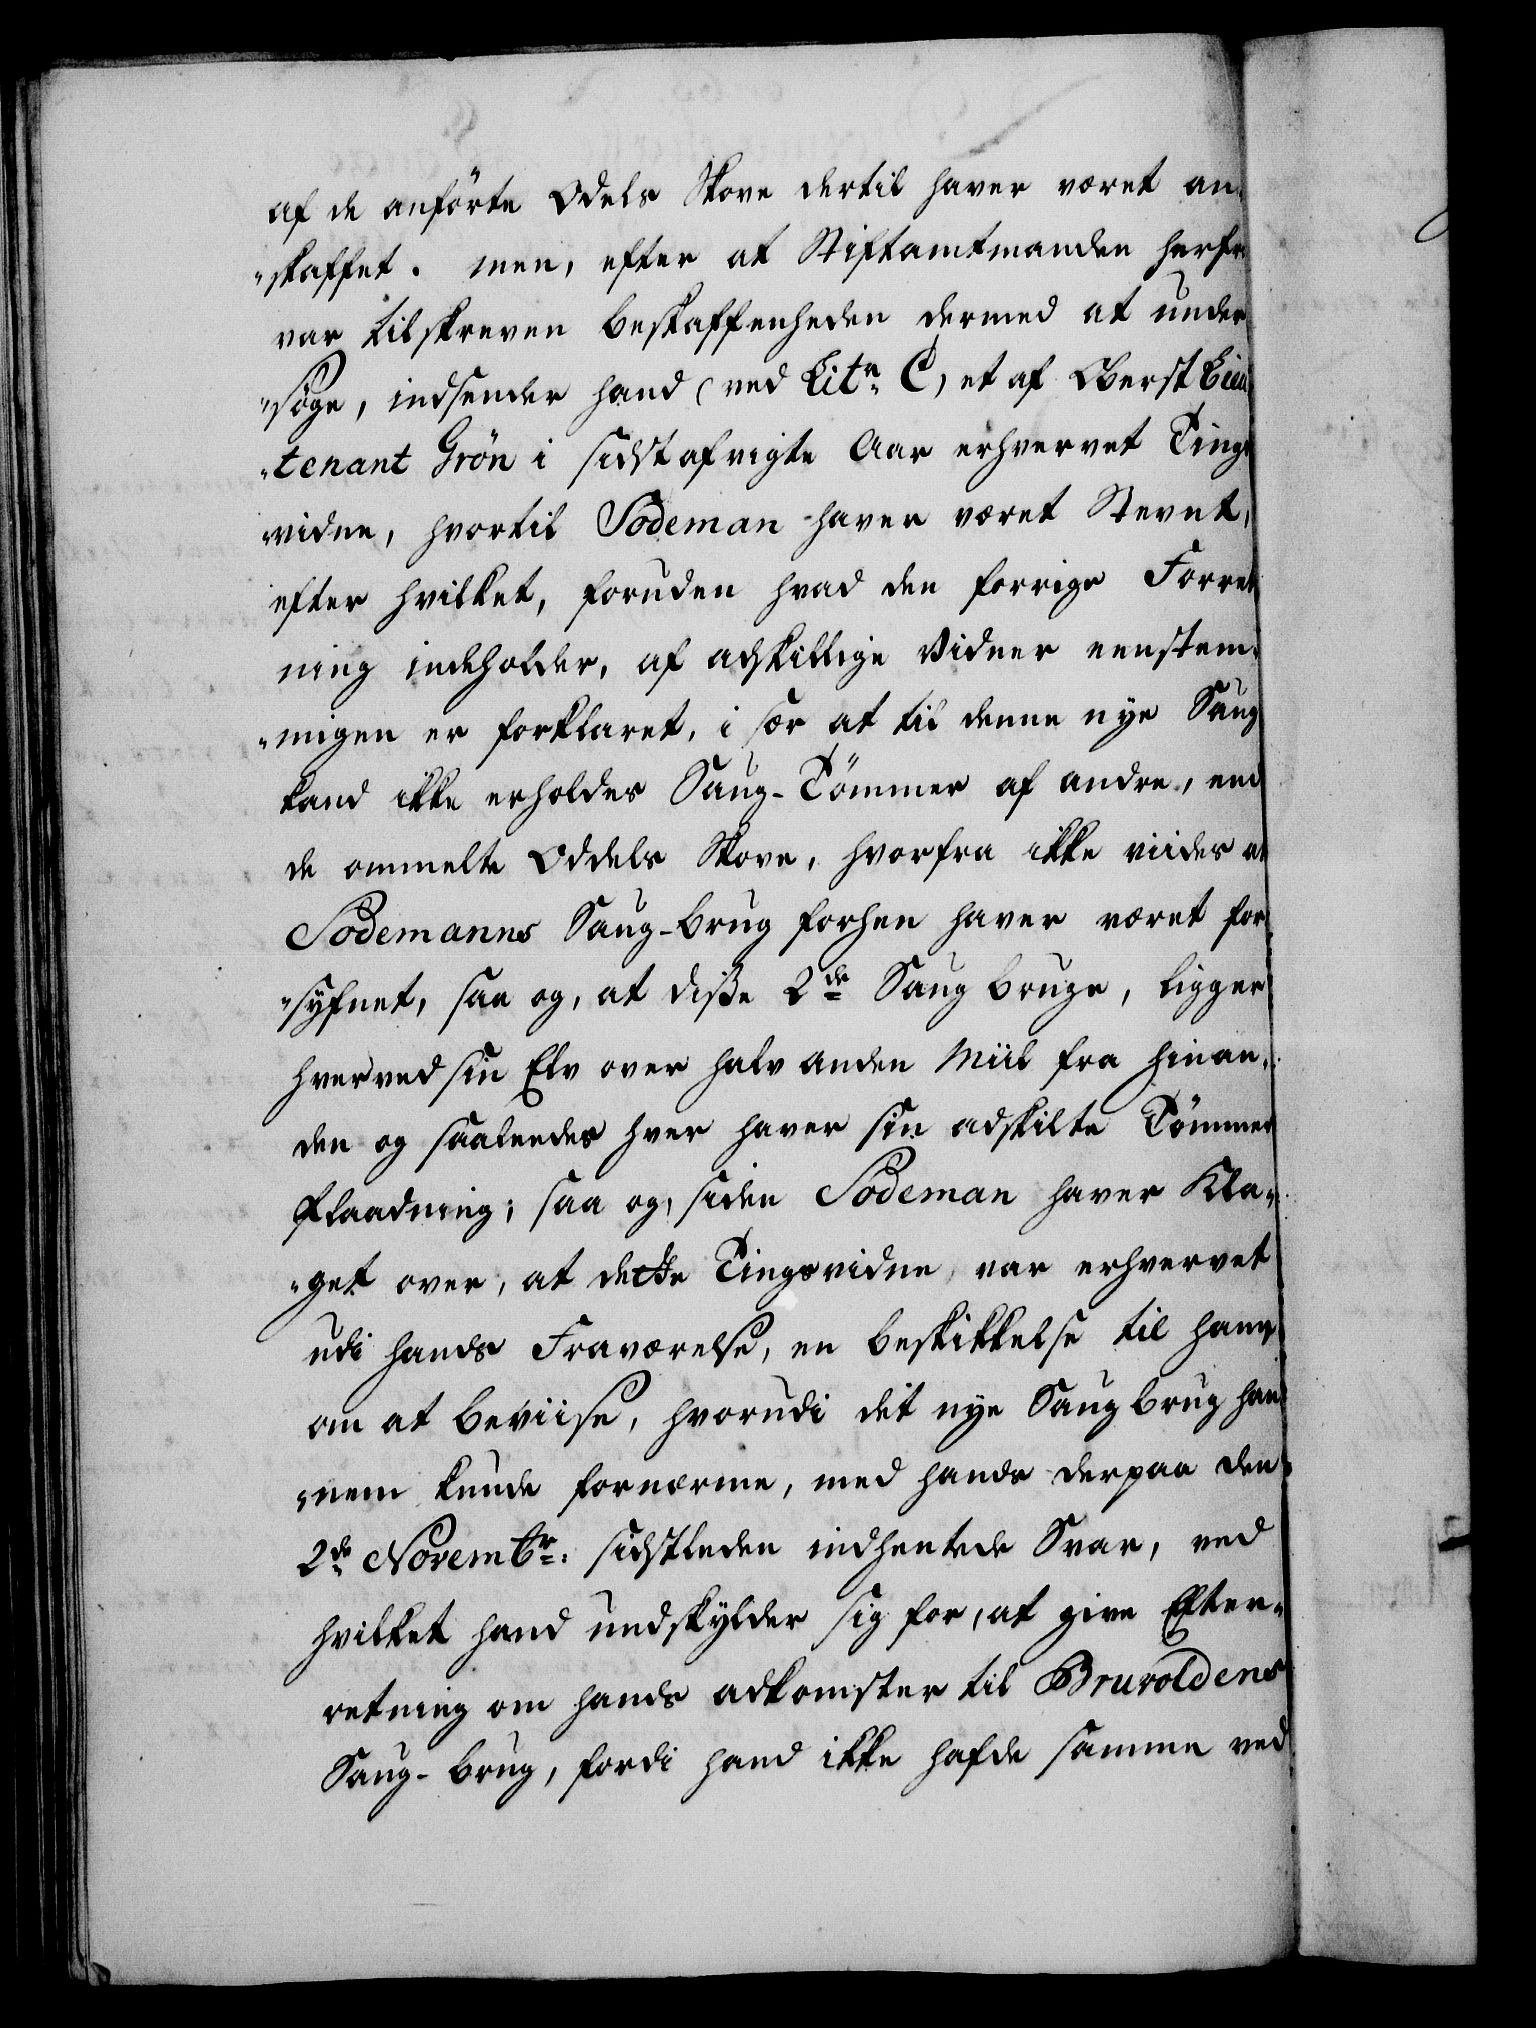 af de anförte Odels Skove dertil haver været an-
„skaffet. men, efter at Stiftamtmanden herfra
var tilskreven beskaffenheden dermed at under
„søge, indsender hand (ved Litr. C, et af Oberst Lieu
„tenant Grön i sidst afvigte Aar erhvervet Tings
„vidne, hvortil Sodeman haver været Stevnt,
efter hvilket, foruden hvad den forrige Forret
ning indeholder, af adskillige Vidner eenstem-
„migen er forklaret, i sær at til denne nye Saug
kand ikke erholdes Saug-Tömmer af andre, end
de ommelte Oddels Skove, hvorfra ikke viides at
Sodemanns Saug-brug forhen haver været for
„syfnet, saa og, at disse 2de Saug bruge, ligger
hver ved sin Elv over halv anden Miil fra hinan-
den og saaleedes hver haver sin adskilte Tömmer
flaadning; saa og, siden Sodeman haver Kla-
„get over, at dette Tingsvidne, var erhvervet
udi hands Fraværelse, en beskikkelse til ham
om at beviise, hvorudi dit nye Saugbrug han
„nem kunde fornærme, med hands derpaa den
2de Novembr. sidstleden indhentede Svar, ved
hvilket hand undskylder sig for, at give Efter-
retning om hands adkomster til Bruvoldens
Saug-brug, fordi hand ikke hafde samme ved